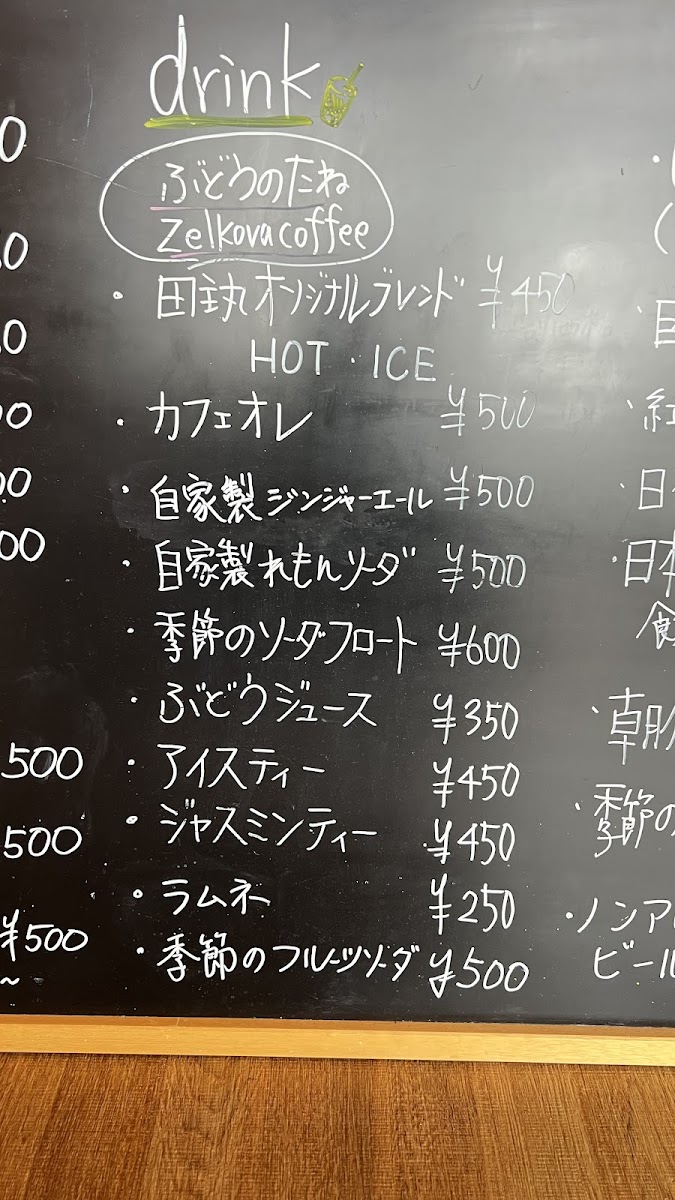 drink
ぶどうのたね
Zelkova coffee
・田主丸オリジナルブレンド ¥450
HOT・ICE
・カフェオレ ¥500
・自家製ジンジャーエール ¥500
・自家製れもんソーダ ¥500
・季節のソーダフロート ¥600
・ぶどうジュース ¥350
・アイスティー ¥450
・ジャスミンティー ¥450
・ラムネ ¥250
・季節のフルーツソーダ ¥500
500
500
¥500
~
・紅
・日
・日本
・朝
・季節の
・ノンア
ビール